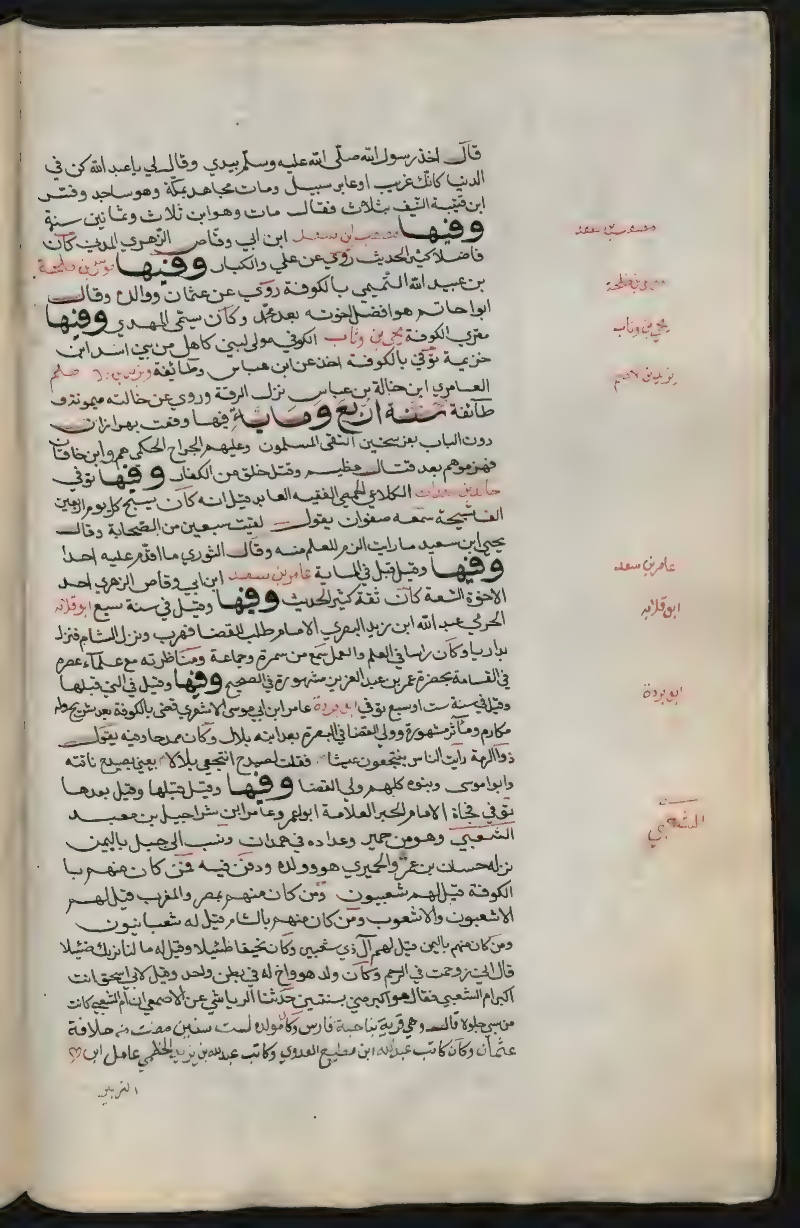 قال اخذ رسول الله صلى الله عليه وسلم بيدي وقال لي يا عبد الله كن في
الدنيا كانك غريب او عابر سبيل ومات مجاهد بمكة وهو ساجد وفسر
ابن قتيبة النيف بثلاث فقال مات وهو ابن ثلاث وثمانين سنة
وفيها مصعب ابن سعد ابن ابي وقاص الزهري المدني كان
فاضلا كثير الحديث روى عن علي والكبار وفيها موسى بن طلحة
بن عبيد الله التميمي بالكوفة روى عن عثمان ووالده وقال
ابوا حاتم هو افضل اخوته بعد محمد وكان سمي المهدي وفيها
مقري الكوفة يحيى بن وثاب الكوفي مولى لبني كاهل من بني اسد ابن
خزيمة توفي بالكوفة اخذ عن ابن عباس وطائفة ويزيد بن الاصم
العامري ابن خالة بن عباس نزل الرقة وروى عن خالته ميمونة و
طائفة سنة اربع وماية فيها وقعت بهرازان
دون الباب بفرسخين التقى المسلمون وعليهم الجراح الحكمي هم وابن خاقان
فهزموهم بعد قتال عظيم وقتل خلق من الكفار وفيها توفي
خالد بن معدان الكلاعي الحمصي الفقيه العابد قيل انه كان يسبح كل يوم اربعين
الف تسبيحة سمعه صفوان يقول لقيت سبعين من الصحابة وقال
يحيى ابن سعيد ما رايت الزم للعلم منه وقال الثوري ما اقدم عليه احدا
وفيها وقيل قبل في الماية عامر بن سعد ابن ابي وقاص الزهري احد
الاخوة التسعة كان ثقة كثير الحديث وفيها وقيل في سنة سبع ابو قلابه
الجرمي عبد الله ابن زيد البصري الامام طلب للقضا فهرب ونزل الشام فنزل
بداريا وكان راسا في العلم والعمل سمع من سمرة وجماعة ومناظرته مع علمآء عصره
في القسامة بحضرة عمر بن عبد العزيز مشهورة في الصحيح وفيها وقيل في التي قبلها
وقيل في سنة ست او سبع توفي ابو بردة عامر ابن ابي موسى الاشعري قضى بالكوفة بعد شريح وله
مكارم ومآثر مشهورة وولي القضا في البصرة بعد ابنه بلال وكان ممدحا وفيه يقول
ذوا الرمة رايت الناس ينتجعون غيثا فقلت لصيدح انتجعي بلالا يعني بصيدح ناقته
وابوا موسى وبنوه كلهم ولي القضا وفيها وقيل قبلها وقيل بعدها
توفي فجاة الامام الحبر العلامة ابو عمرو عامر ابن شراحيل بن معبد
الشعبي وهو من حمير وعداده في همدان ونسب الى جبل باليمن
نزله حسان بن عمرو الحميري هو وولده ودفن فيه فمن كان منهم با
الكوفة قيل لهم شعبيون ومن كان منهم بمصر والمغرب قيل لهم
الاشعبون والاشعوب ومن كان منهم بالشام قيل له شعبانيون
ومن كان منهم باليمن قيل لهم آل ذي شعبين وكان نحيفا ظئيلا وقيل له ما لنا نراك ضئيلا
قال اني زوحمت في الرحم وكان ولد هو واخ له في بطن واحد وقيل لابي اسحق انت
اكبر ام الشعبي فقال هو اكبر مني بسنتين حدثنا الرياشي عن الاصمعي ان ام الشعبي كانت
من سبي جلولا قال وهي قرية بناحية فارس وكان مولده لست سنين مضت من خلافة
عثمان وكان كاتب عبد الله ابن مطيع العدوي وكاتب عبد الله بن يزيد الخطمي عامل ابن
الزبير
مصعب بن سعد
موسى بن طلحة
يحيى بن وثاب
يزيد بن الاصم
عامر بن سعد
ابو قلابه
ابو بردة
الشعبي